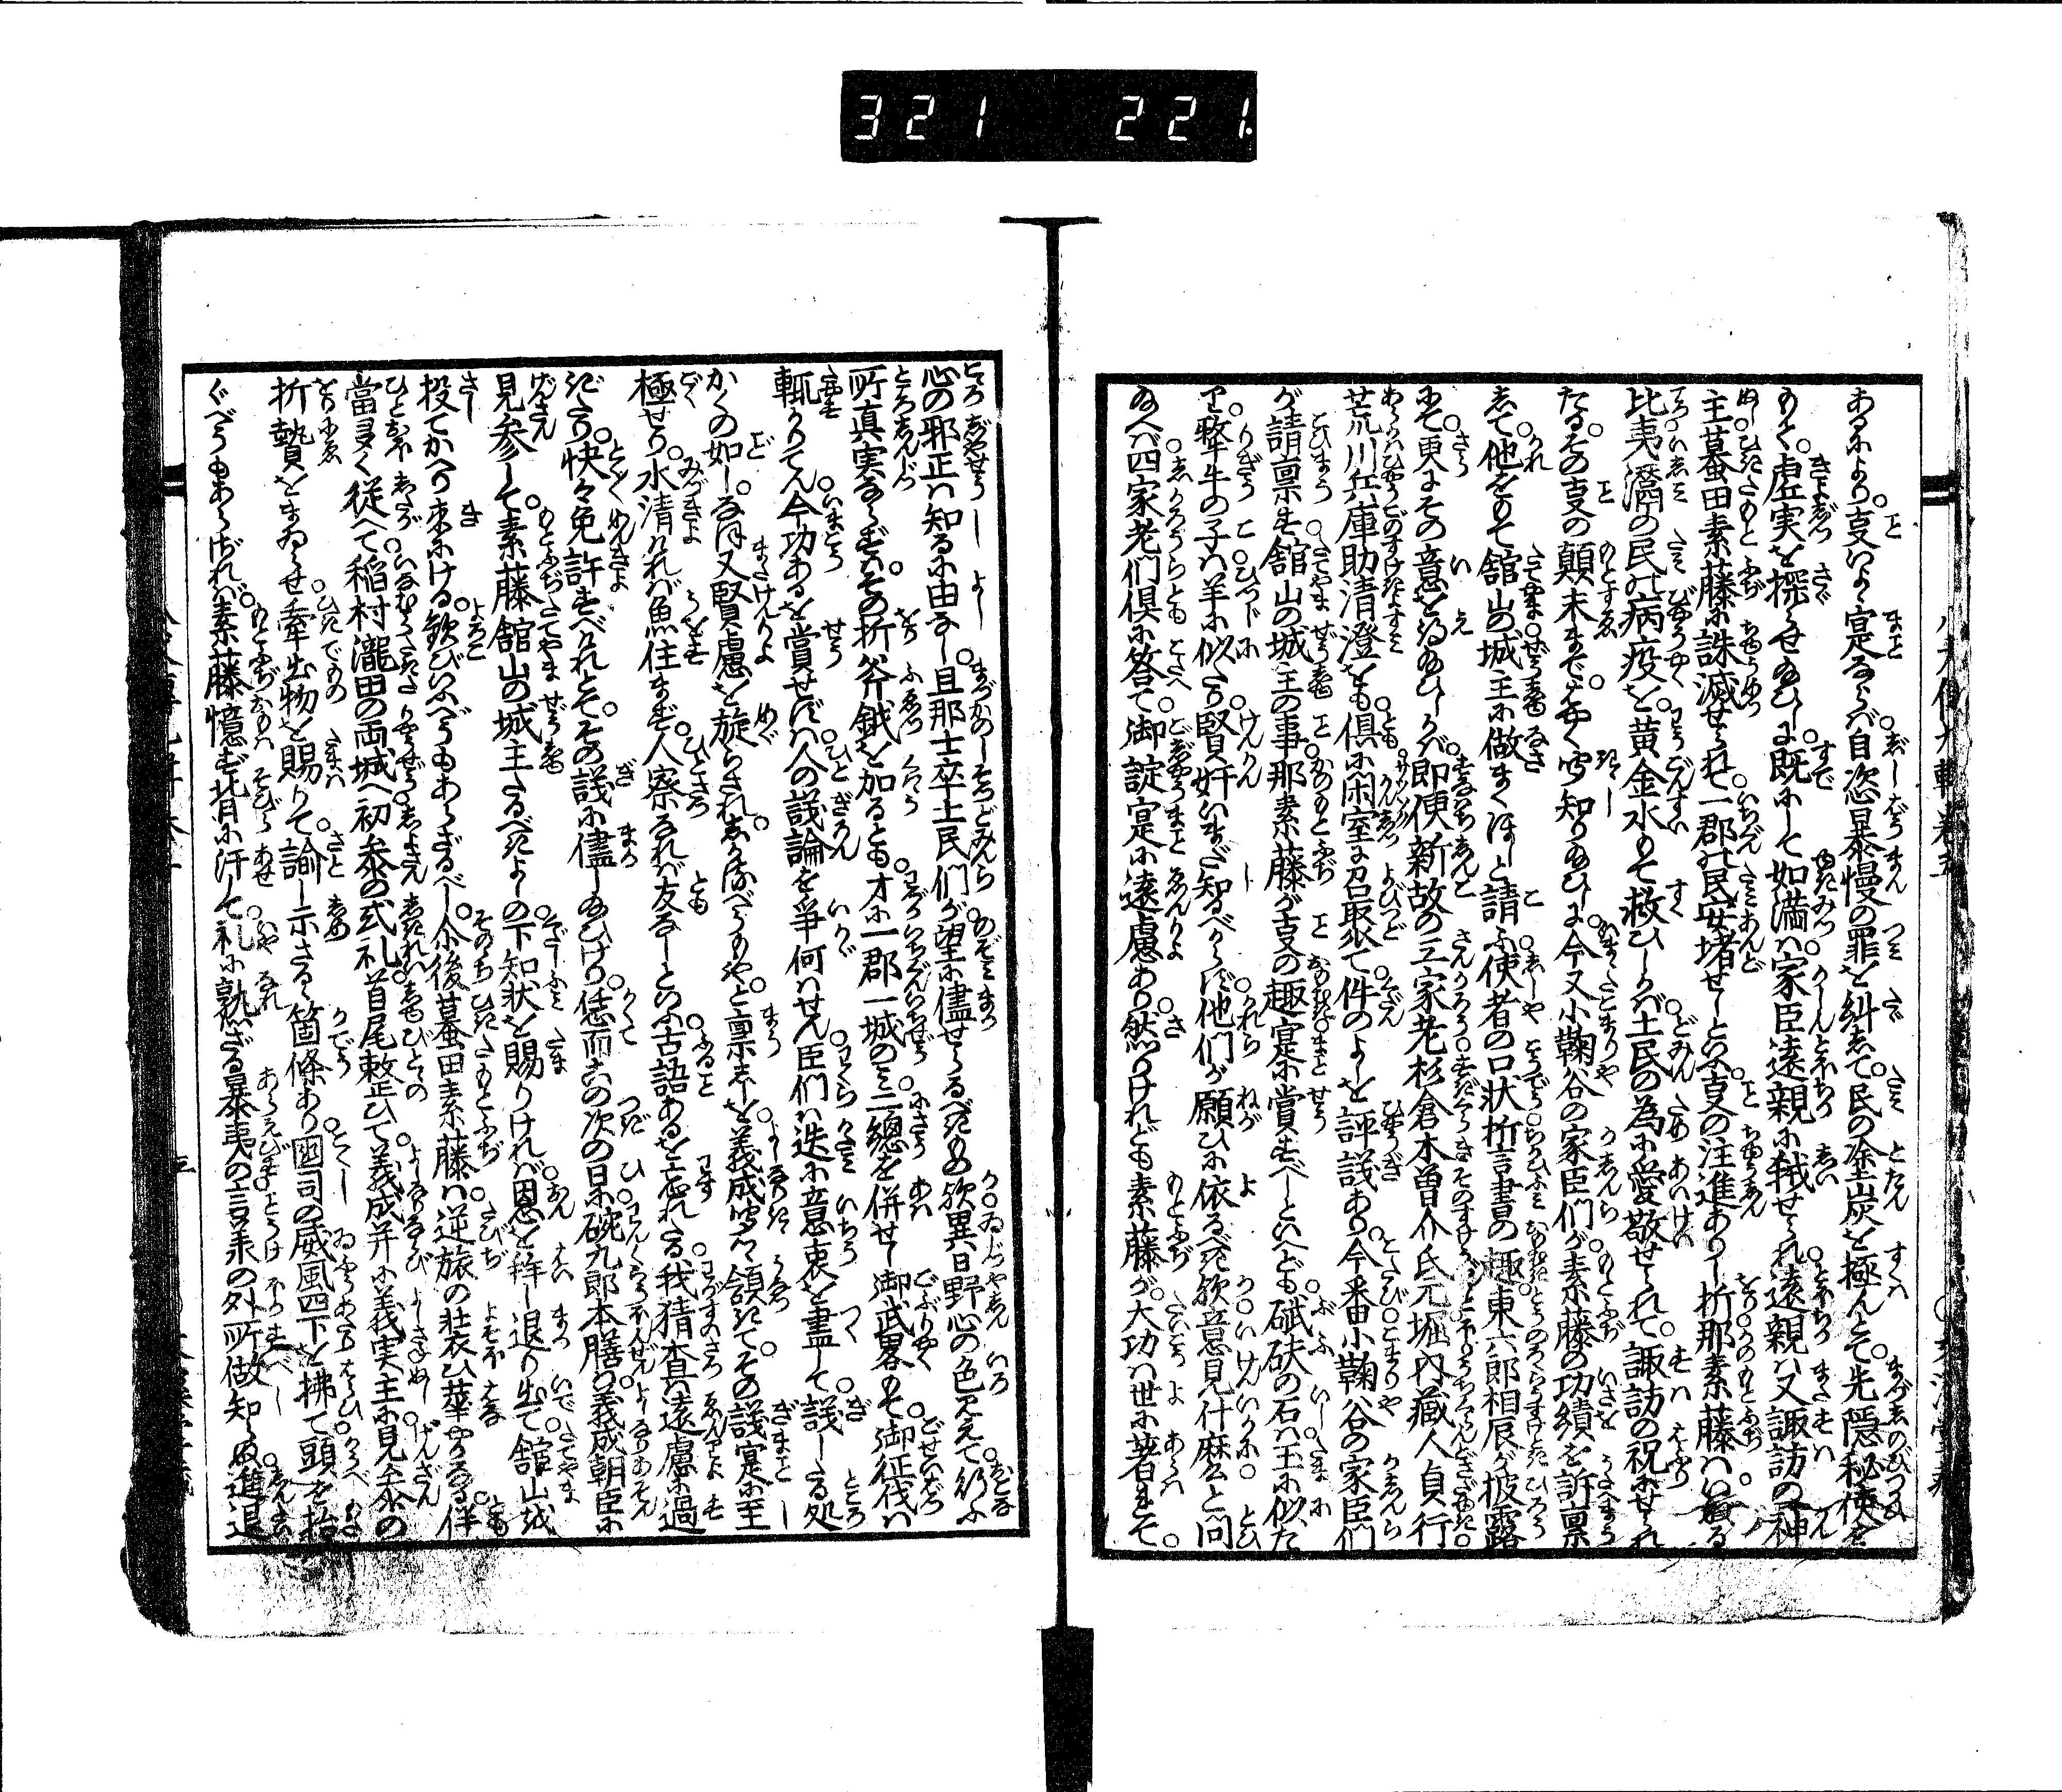 321 221.
あるにより。事はよく寔ならば。自恣暴慢の罪を糾して。民の塗炭を極んとて。先隠秘使を
もて。虚実を探らせ給ひしに。既にして如満は。家臣遠親に弑せられ。遠親は又諏訪の神
主蟇田素藤に誅滅せられて。一郡の民安堵せしといふ。事の注進ありし折。那素藤はいぬる
比。夷灊の民の病疫を。黄金水もて救ひしかば。土民の為に愛敬せられて。諏訪の祝にせられ
たる。その事の顛末まで。はやく聞知り給ひしに。今又小鞠谷の家臣們が。素藤の功績を訴稟
して。他をもて館山の城主に做まくほしと請ふ。使者の口状。折言書の趣。東六郎相辰が披露
にて。更にその意を得給ひしかば。即便新故の三家老。杉倉木曽介氏元。堀内蔵人貞行。
荒川兵庫助清澄をも。倶に閑室に召聚合て。件のよしを評議あり。今番小鞠谷の家臣們
が請稟す。館山の城主の事。那素藤が事の趣。寔に賞すべしといへども。砥砆の石は玉に似た
り。犂牛の子は羊に似たり。賢奸いまだ知るべからず。他們が願ひに依るべき歟。意見什麼と問
給へば。四家老們倶に答て。御諚寔に遠慮あり。然りけれども素藤が。大功は世に著すて。
心の邪正は知るに由なし。且那士卒土民們が望に儘せらるべきのみ歟。異日野心の色見えて。行ふ
所真実ならずば。その折斧鉞を加るとも。才に一郡一城のみ。三総を併せし。御武略もて御征伐は
輒かりてん。今功あるを賞せずは。人の議論を争何はせん。臣們は迭に意衷を盡して。議したる処
かくの如し。なほ又賢慮を旋らされ。しかるべうもや。と稟しゝを。義成聞々頷きて。その議寔に至
極せり。水清ければ魚住まず。人察なれば友なしといふ。古語あるを忘れたる。我猜査は遠慮に過
ぎたり。快々免許すべけれとて。その議に儘し給ひけり。恁而六の次の日に。碗九郎本膳は。義成朝臣に
見参して。素藤館山の城主たるべきよしの。下知状を賜りければ。恩を拝し退り出て。館山城
投てかへり来にける。歓びいふべうもあらざるべし。尒後蟇田素藤は。逆旅の荘衣ひ華やかなる。伴
當多く従へて。稲村瀧田の両城へ。初参の式礼。首尾敕正ひて。義成并に義実主に見参の
折。贄をまゐらせ。牽出物を賜りて。諭し示さるゝ箇條あり。國司の威風四下を拂て。頭を抬
ぐべうもあらざれば。素藤憶ず背に汗して。礼に熟ざる暴夷の。言羕の外所做知らぬ。進退